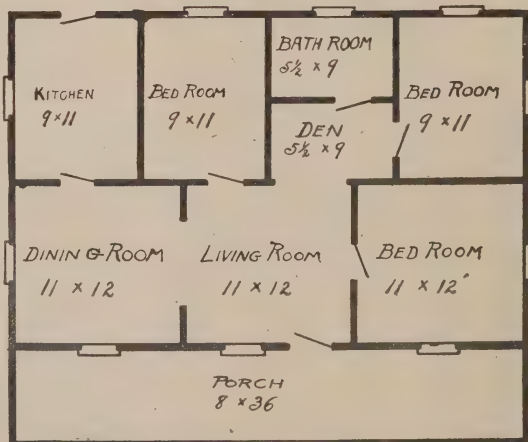 KITCHEN
9 × 11
BED ROOM
9 × 11
BATH ROOM
5½ × 9
DEN
5½ × 9
BED ROOM
9 × 11
DINING ROOM
11 × 12
LIVING ROOM
11 × 12
BED ROOM
11 × 12
PORCH
8 × 36